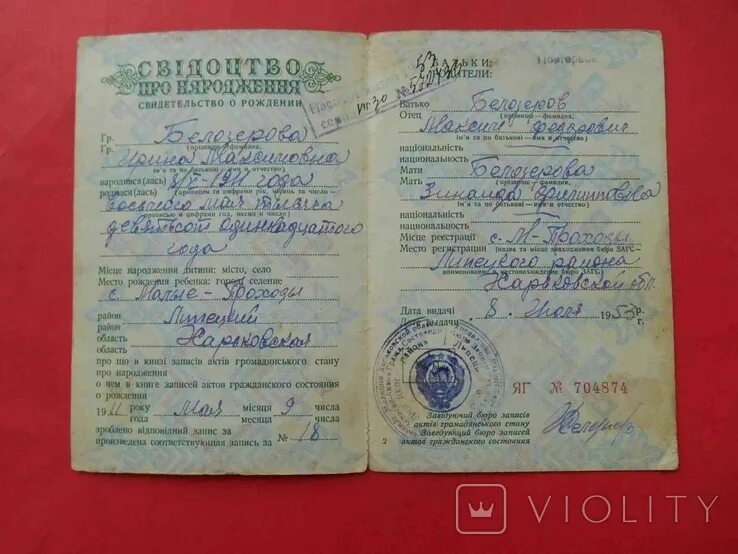 СВІДОЦТВО
ПРО НАРОДЖЕННЯ
СВИДЕТЕЛЬСТВО О РОЖДЕНИИ
Гр. Белозерова
Гр. (прізвище — фамилия,
Ирина Максимовна
ім'я та по батькові — имя и отчество)
народився(лась) 8/V-1911 года
родился(лась) (прописом та цифрами рік, місяць та число —
восьмого мая тысяча
прописью и цифрами год, месяц и число)
девятьсот одиннадцатого
года
Місце народження дитини: місто, село
Место рождения ребенка: город, селение
с. Малые-Проходы
район Липецкий
район
область Харьковская
область
про що в книзі записів актів громадянського стану
про народження
о чем в книге записей актов гражданского состояния
о рождении
1911 року Мая місяця 9 числа
года месяца числа
зроблено відповідний запис за
произведена соответствующая запись за № 18
VІІ 30
53
502430
БАТЬКИ:
РОДИТЕЛИ:
Повторное
Батько Белозеров
Отец (прізвище — фамилия,
Максим Федорович
ім'я та по батькові — имя и отчество)
національність
национальность
Мати Белозерова
Мать (прізвище — фамилия,
Зинаида Филипповна
ім'я та по батькові — имя и отчество)
національність
национальность
Місце реєстрації с. М-Проходы
Место регистрации (назва та місце знаходження бюро ЗАГС —
Липецкого района
наименование и местонахождение бюро ЗАГС)
Харьковской обл.
Дата видачі 8 Июля 1953 р.
Дата выдачи г.
ЯГ № 704874
Завідуючий бюро записів
актів громадянського стану
Заведующий бюро записей
актов гражданского состояния
2
VIOLITY